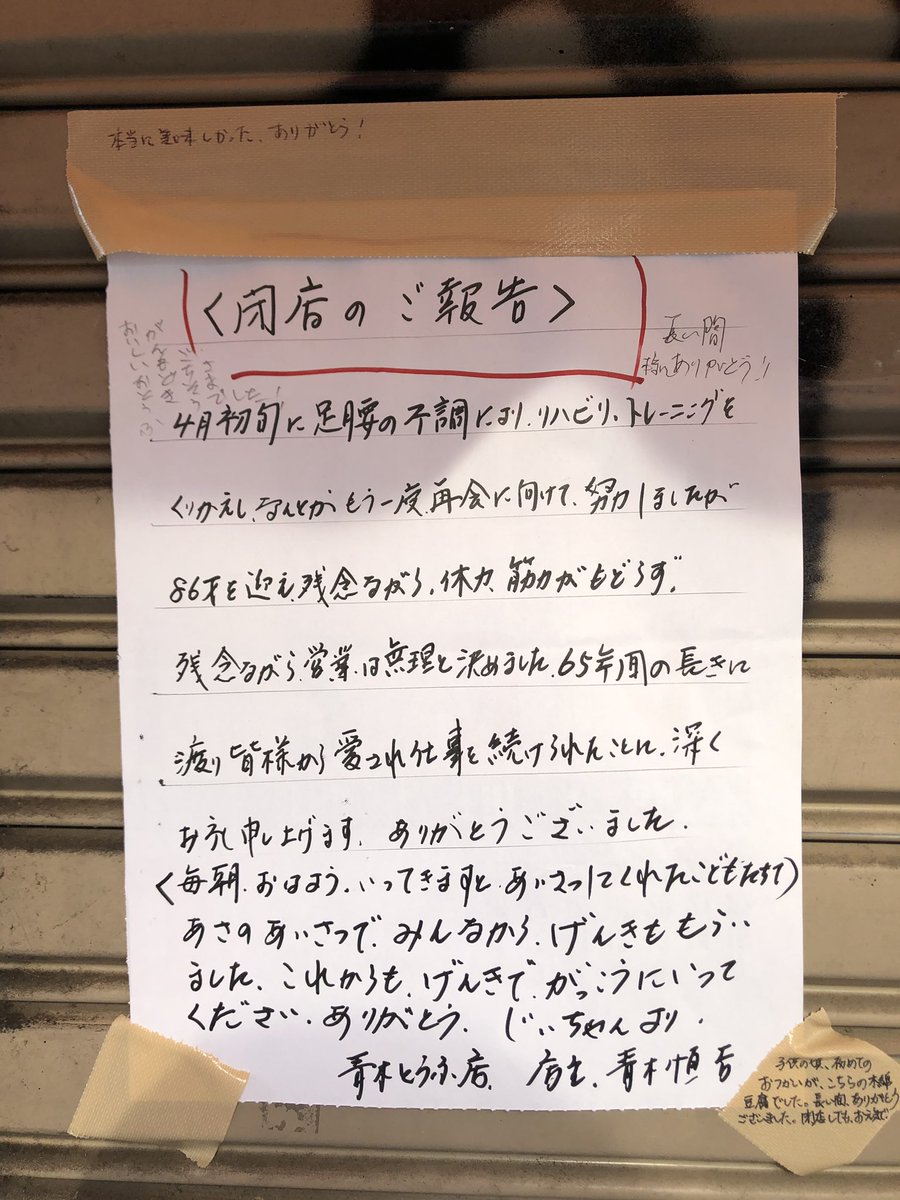 本当に美味しかった、ありがとう!
<閉店のご報告>
長い間
本当にありがとう!!
おいしいおとうふ
がんもどき
ごちそうさまでした!
4月初旬に足腰の不調により、リハビリ、トレーニングを
くりかえし、なんとかもう一度、再会に向けて、努力しましたが
86才を迎え、残念ながら、体力、筋力がもどらず、
残念ながら、営業は無理と決めました、65年間の長きに
渡り皆様から愛され仕事を続けられたことに、深く
お礼申し上げます、ありがとうございました、
<毎朝、おはよう、いってきますと、あいさつしてくれたこどもたちへ>
あさのあいさつで、みんなから、げんきももらい
ました、これからも、げんきで、がっこうにいって
ください、ありがとう、じいちゃんより、
青木とうふ店、店主、青木慎吾
子供の頃、初めての
おつかいが、こちらの木綿
豆腐でした。長い間、ありがとう
ございました。閉店しても、お元気で